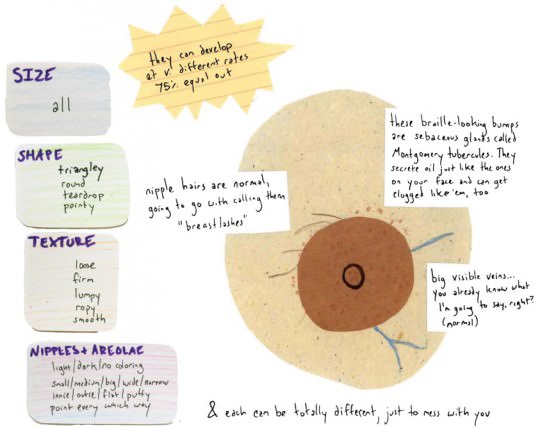 they can develop
at v. different rates
75% equal out
SIZE
all
SHAPE
triangley
round
teardrop
pointy
TEXTURE
loose
firm
lumpy
ropy
smooth
NIPPLES + AREOLAE
light/dark/no coloring
small/medium/big/wide/narrow
innie/outie/flat/puffy
point every which way
nipple hairs are normal,
going to go with calling them
"breastlashes"
these braille-looking bumps
are sebaceous glands called
Montgomery tubercules. They
secrete oil just like the ones
on your face and can get
clogged like 'em, too
big visible veins...
you already know what
I'm going to say, right?
(normal)
& each can be totally different, just to mess with you